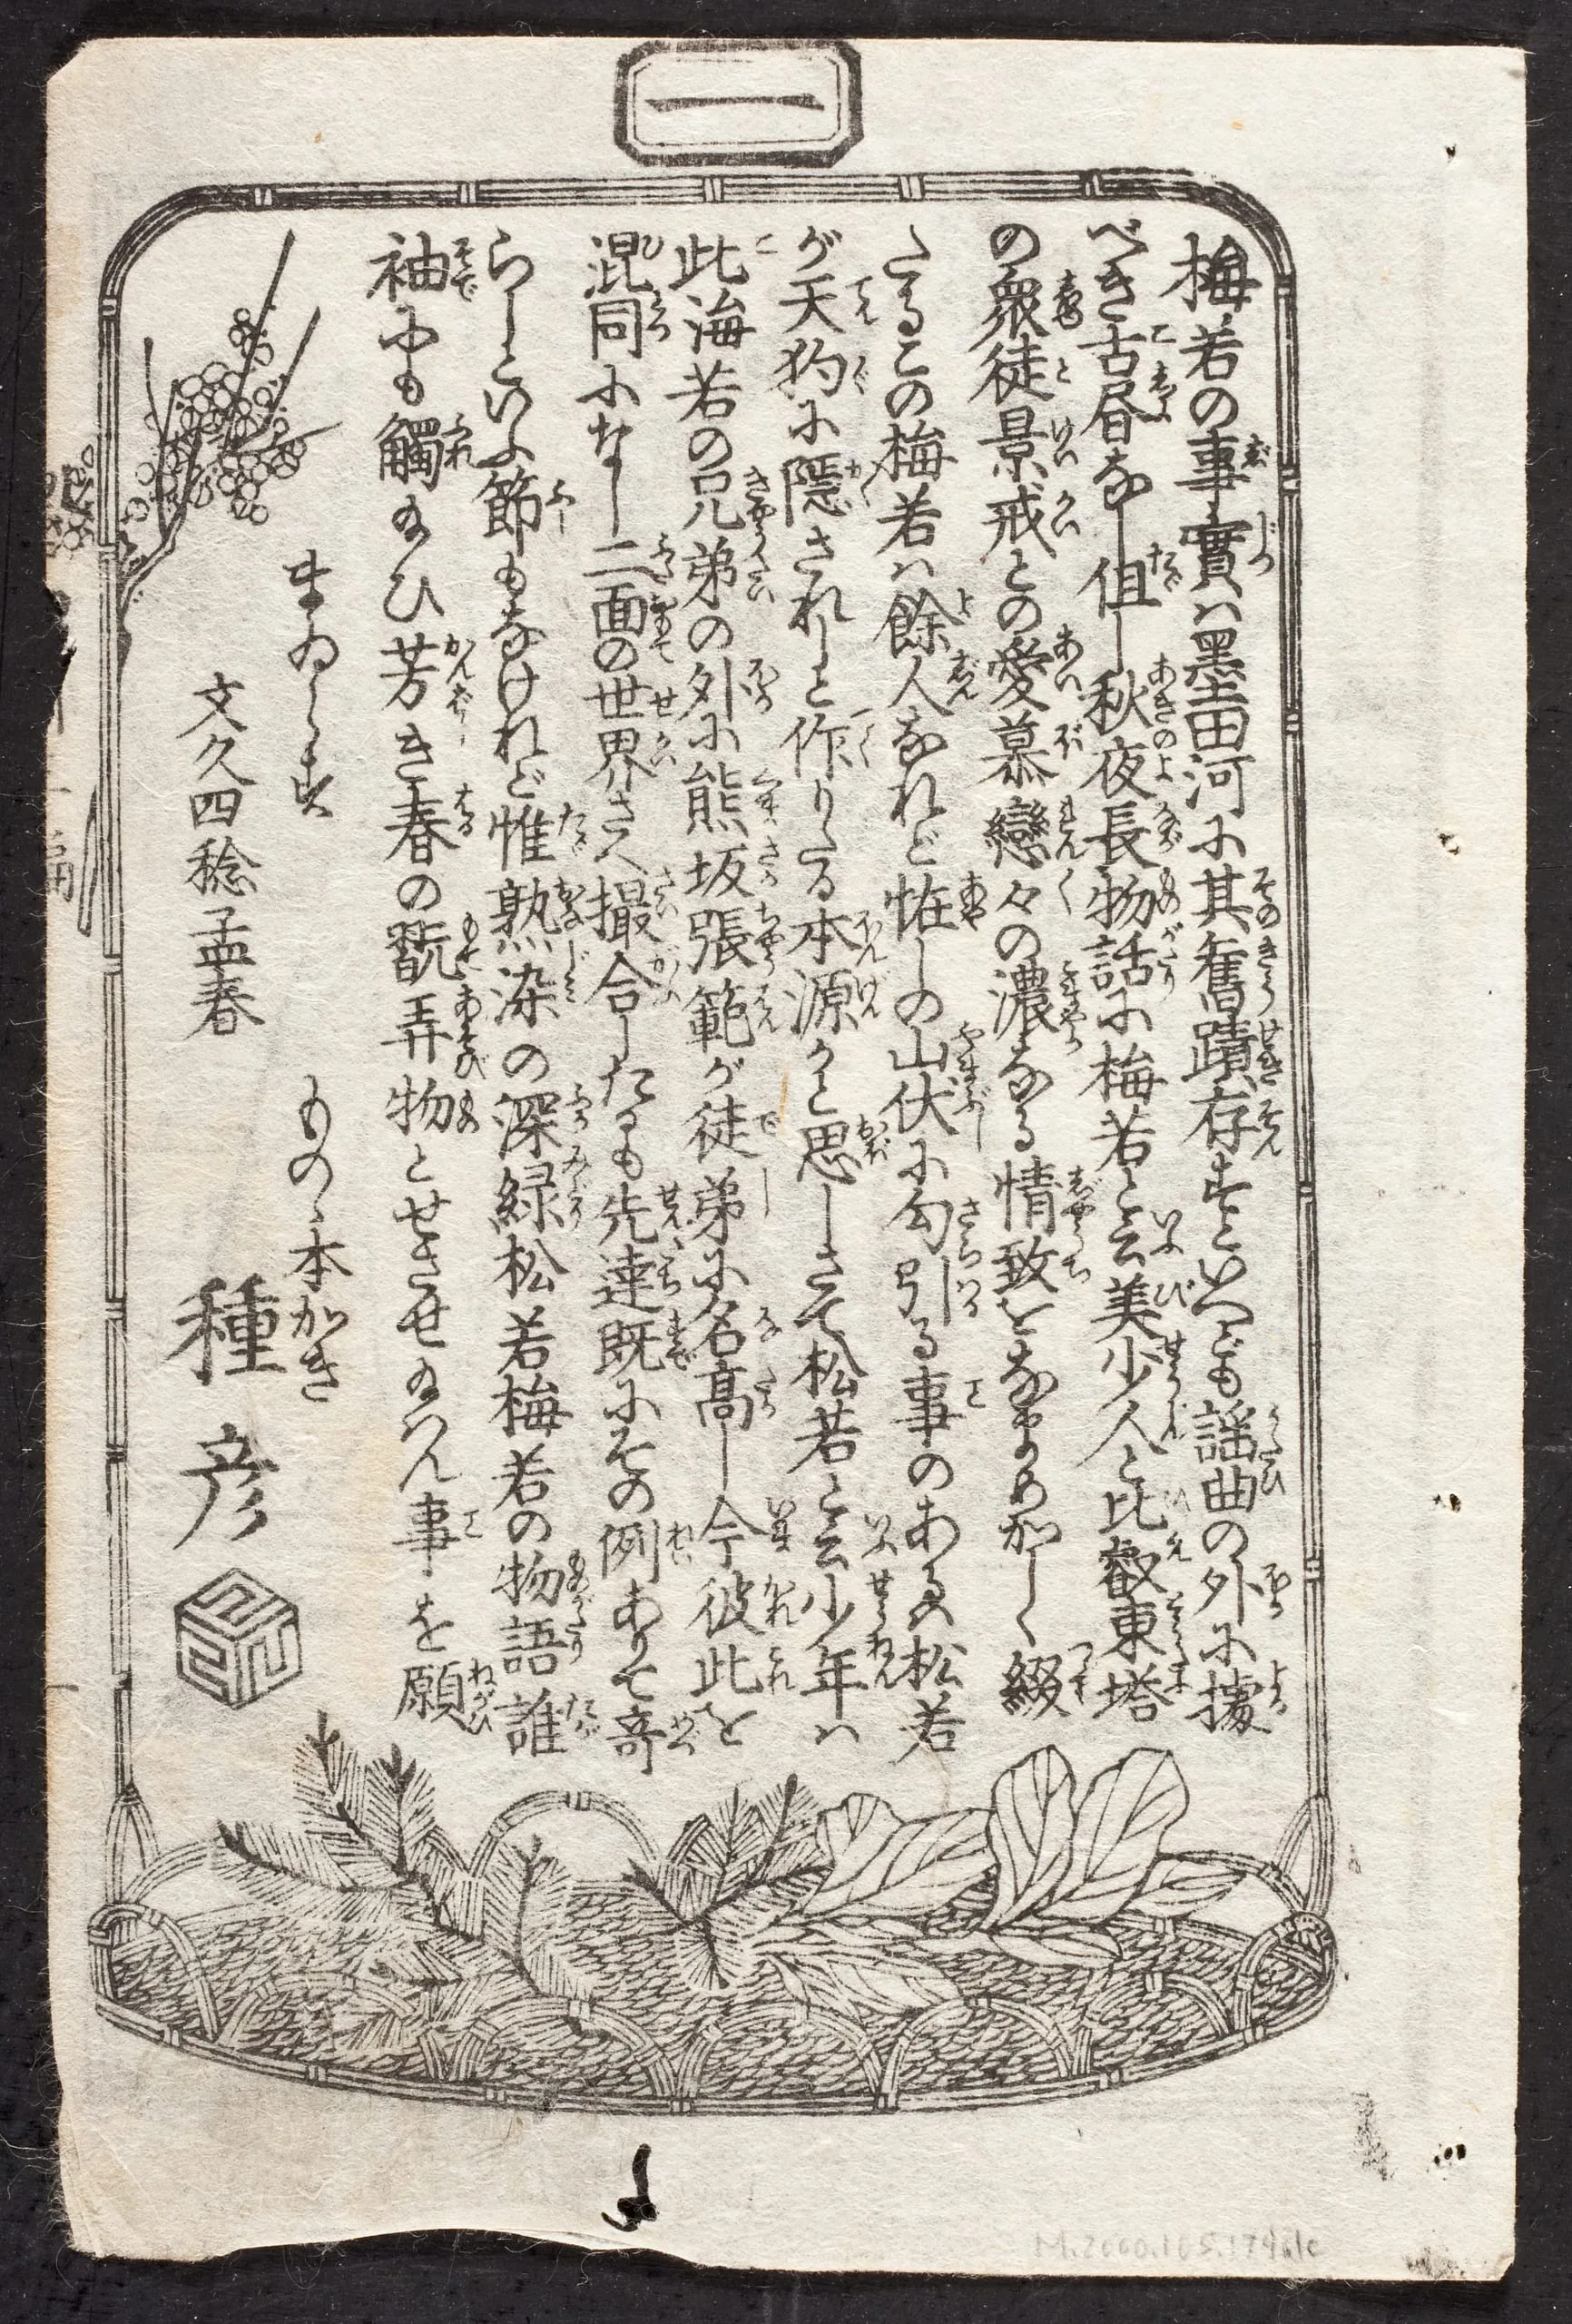 一
梅若の事實ハ墨田河に其舊蹟存すといへども謡曲の外に據
べき古昔なし但し秋夜長物話に梅若と云美少人と比叡東塔
の衆徒景戒との愛慕戀々の濃なる情致をなまめかしく綴
たるこの梅若ハ餘人なれど恠しの山伏に勾引る事のあるハ松若
が天狗に隠されしと作りたる本源かと思しさて松若と云少年ハ
此梅若の兄弟の外に熊坂張範が徒弟に名高し今彼此を
混同になし二面の世界さへ撮合したるも先達既にその例ありて奇
らしといふ節もなけれど惟熟染の深緑松若梅若の物語誰
袖にも觸給ひ芳き春の翫弄物とせさせ給へん事を願
まゐらす
ものゝ本かき
文久四稔孟春
種彦
M.2000.105.174.1c